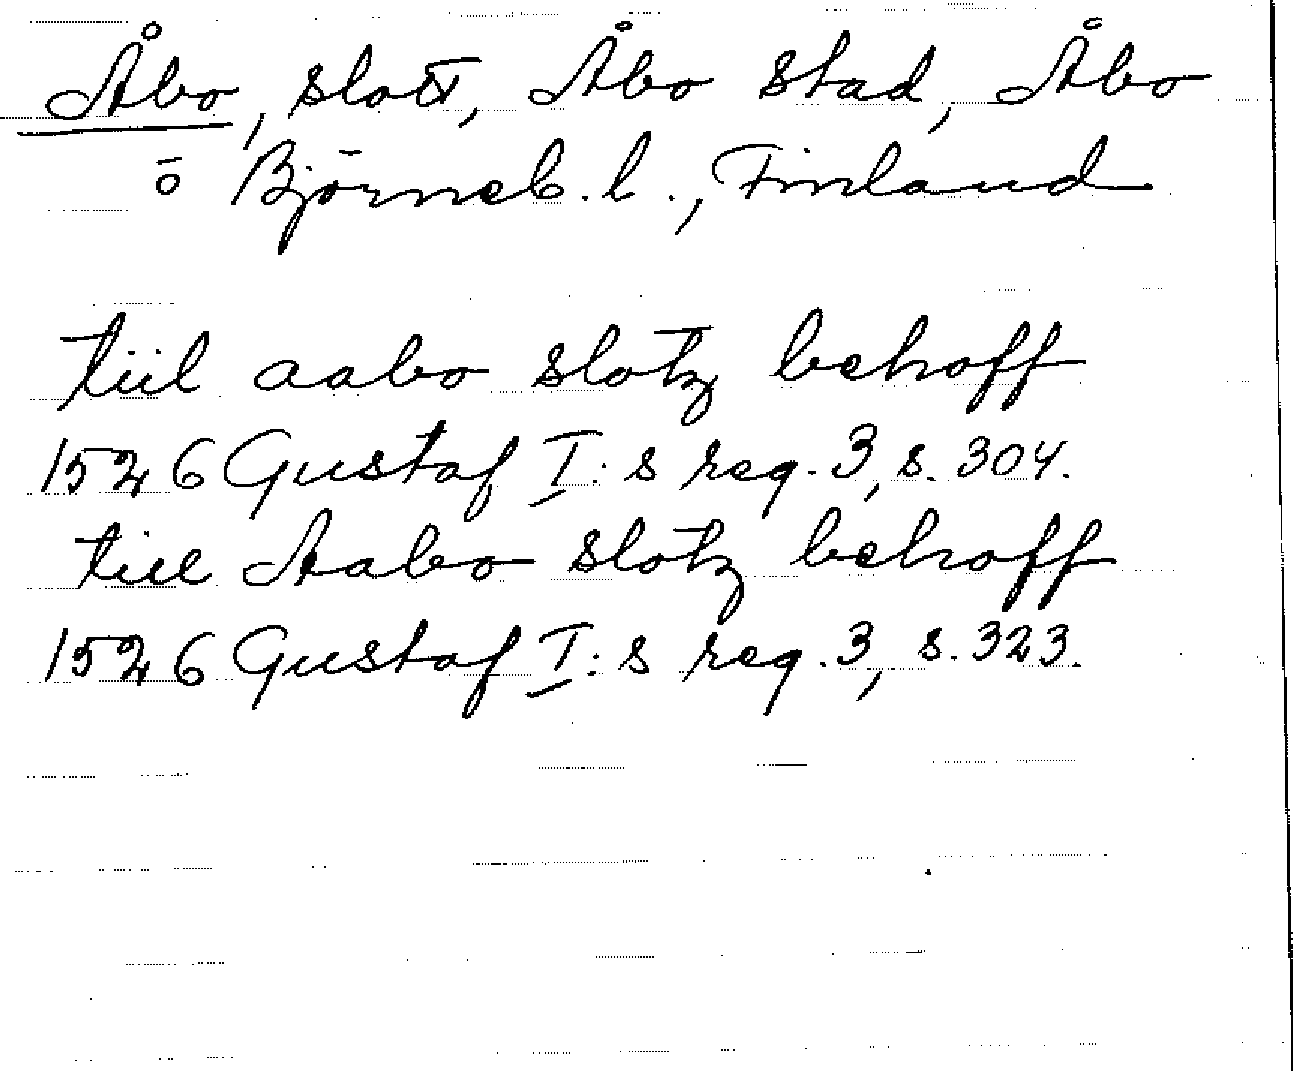 Åbo, slott, Åbo stad, Åbo
ō Björneb. l., Finland
tiil aabo slotz behoff
1526 Gustaf I:s reg. 3, s. 304.
till Aabo slotz behoff
1526 Gustaf I:s reg. 3, s. 323.